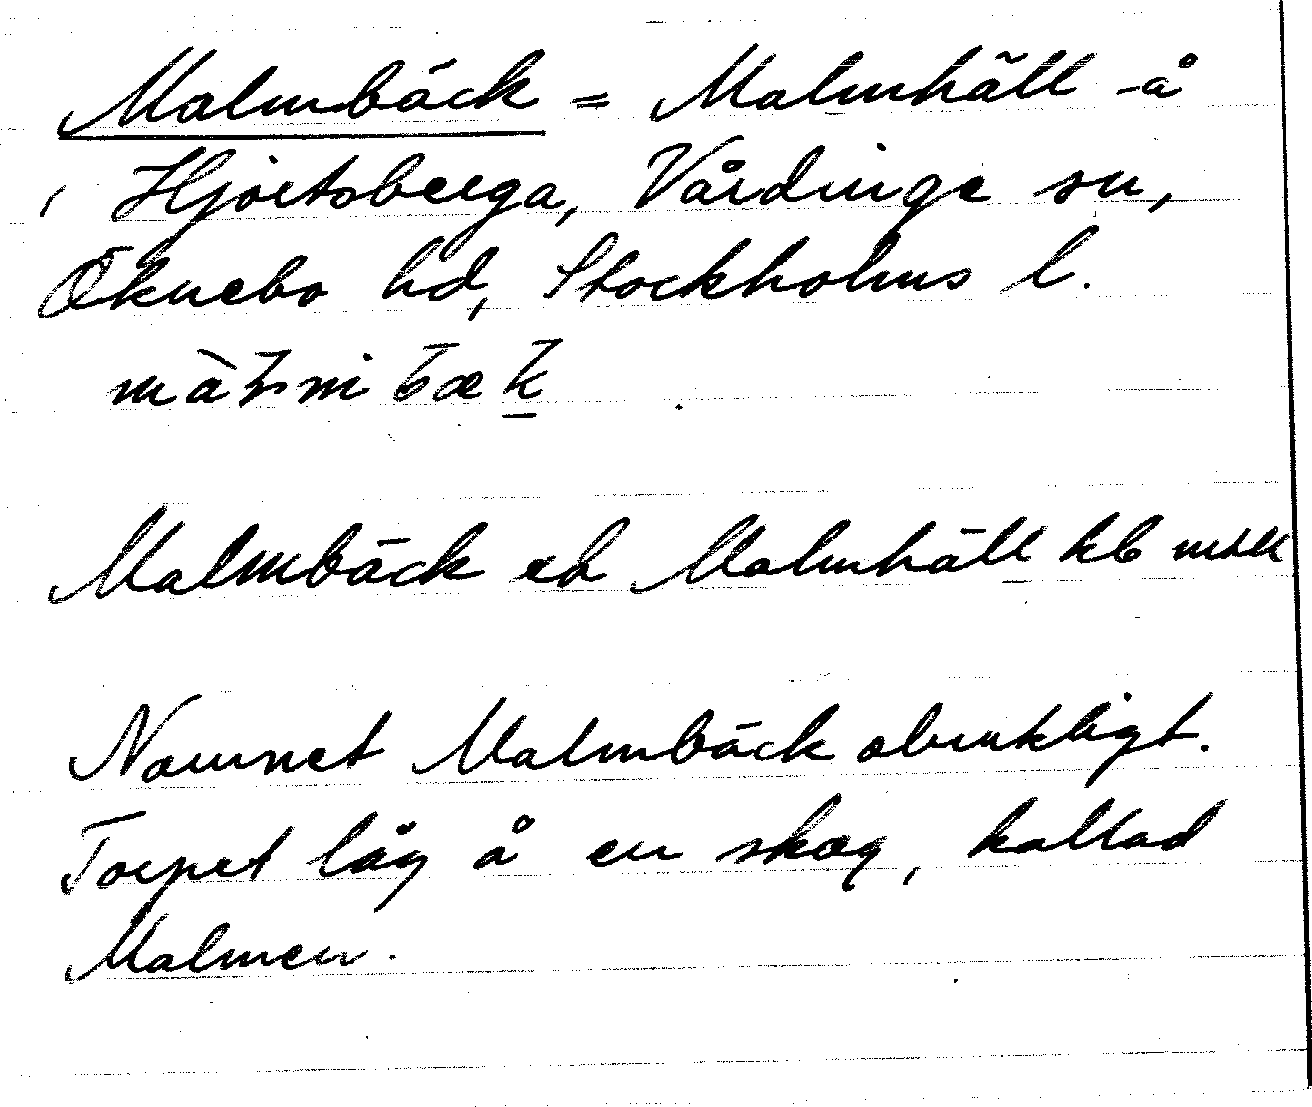 Malmbäck = Malmhäll -å
Hjortsberga, Vårdinge sn,
Öknebo hd, Stockholms l.
Malmbäck el Malmhäll kb
Namnet Malmbäck obrukligt.
Torpet låg å en skog, kallad
Malmen.